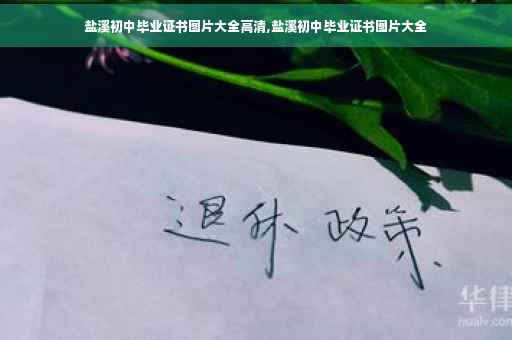 盐溪初中毕业证书图片大全高清,盐溪初中毕业证书图片大全
退休 政策
华律
hualv.com